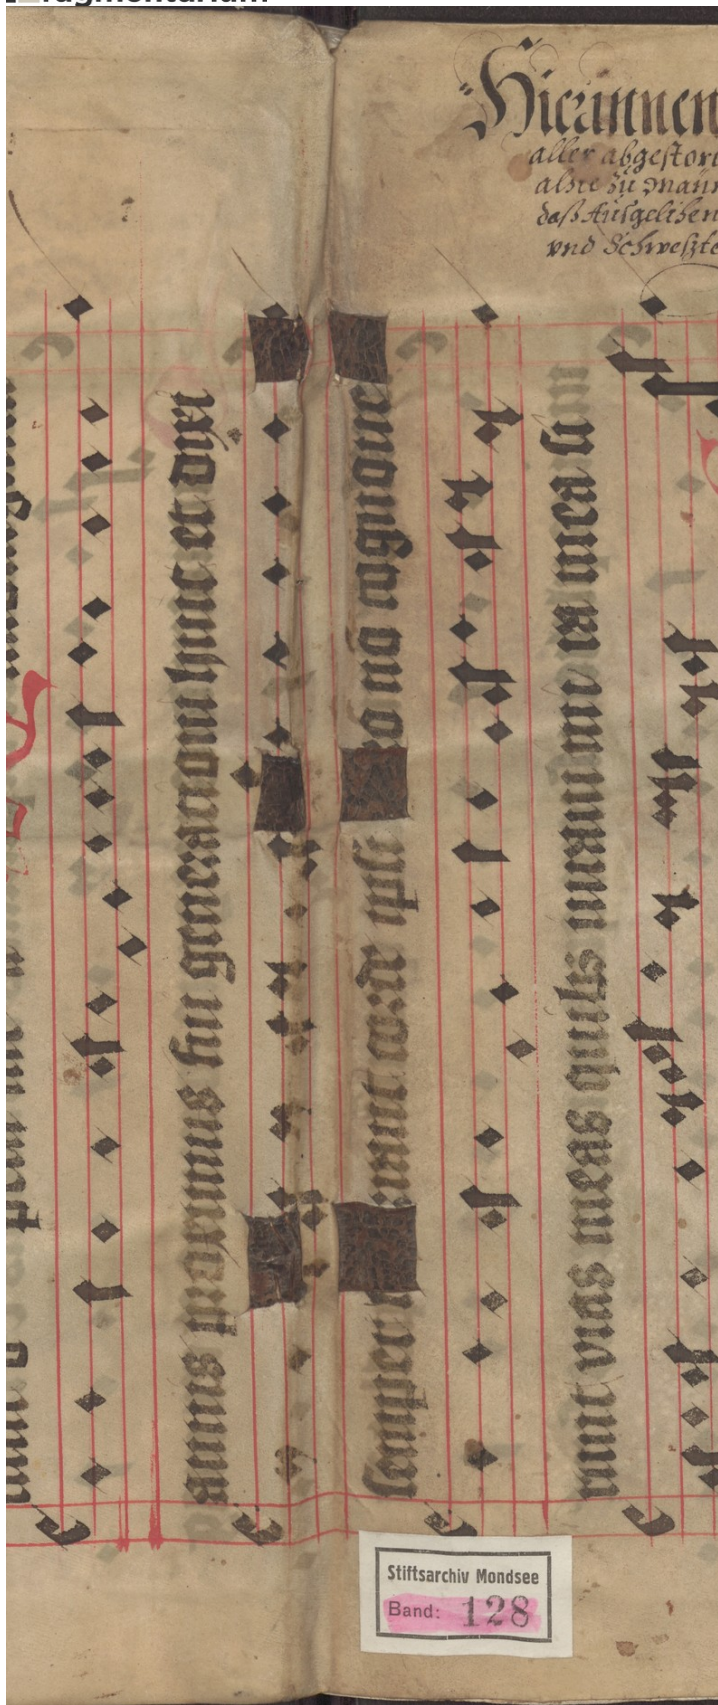 ragmentarium
Hierinnen
aller abgestor
alhie zu Mann
daß Außgelihen
vnd Schweste
annis proximus fui generationi huic et dixi
semper rant corde ipsi o nō cognoue
runt vias meas quibꝫ iuraui in ira mea si in
Stiftsarchiv Mondsee
Band: 128